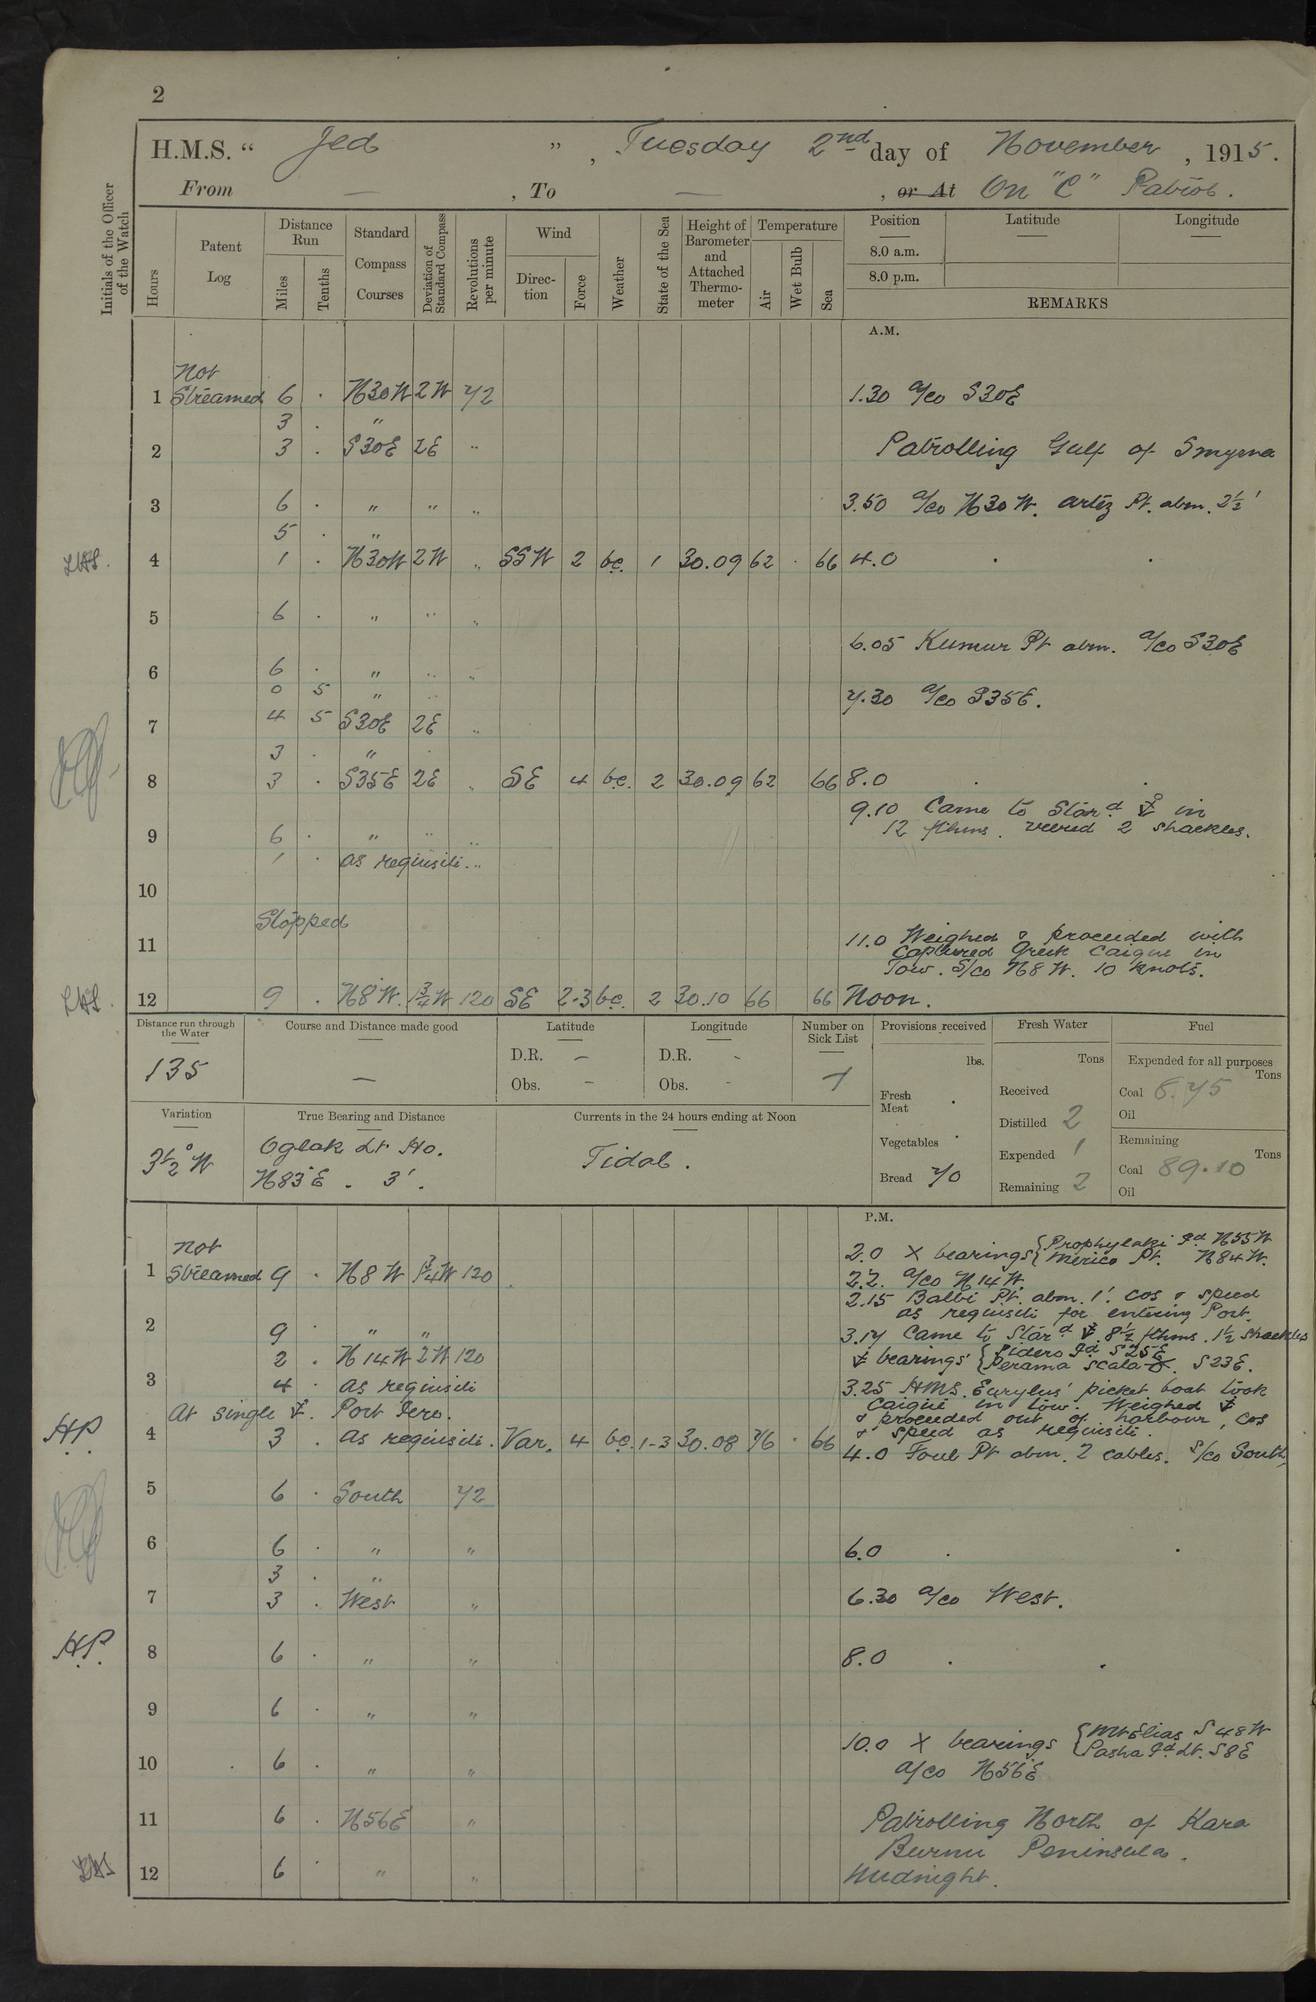 2
H.M.S. " Jed " , Tuesday 2nd day of November , 1915.
From — , To — , or At On "C" Patrol.
Initials of the Officer of the Watch
Hours
Patent Log
Distance Run
Miles
Tenths
Standard Compass Courses
Deviation of Standard Compass
Revolutions per minute
Wind
Direction
Force
Weather
State of the Sea
Height of Barometer and Attached Thermometer
Temperature
Air
Wet Bulb
Sea
Position
Latitude
Longitude
8.0 a.m.
8.0 p.m.
REMARKS
A.M.
Not
1 Streamed 6 . N30W 2W 72 1.30 a/co S30E
3 . "
2 3 . S30E 2E " Patrolling Gulf of Smyrna
3 6 . " " " 3.50 a/co N30W. Artez Pt. abm. 2½'
5 . "
4 1 . N30W 2W " SSW 2 bc. 1 30.09 62 . 66 4.0 . .
5 6 . " " "
6.05 Kumur Pt abm. a/co S30E
6 6 . " " "
0 5 " "
7.30 a/co S35E.
7 4 5 S30E 2E "
3 . "
8 3 . S35E 2E " SE 4 bc. 2 30.09 62 66 8.0 . .
9.10 Came to Starbd ⚓ in
12 fthms. veered 2 shackles.
9 6 . " " "
1 . as requisite. "
10
Stopped
11 11.0 Weighed & proceeded with
captured Greek Caique in
Tow. S/co N8W. 10 knots.
12 9 . N8°W. ¾W 120 SE 2-3 bc. 2 30.10 66 66 Noon.
Distance run through the Water
135
Course and Distance made good
—
Latitude
D.R. —
Obs. —
Longitude
D.R. -
Obs. -
Number on Sick List
1
Provisions received
lbs.
Fresh Meat .
Vegetables .
Bread 70
Fresh Water
Tons
Received
Distilled 2
Expended 1
Remaining 2
Fuel
Expended for all purposes
Tons
Coal 8.75
Oil
Remaining
Tons
Coal 89.10
Oil
Variation
3½° W
True Bearing and Distance
Oglak Lt. Ho.
N83°E. 3'.
Currents in the 24 hours ending at Noon
Tidal.
P.M.
Not
2.0 X bearings { Prophylaki Id N55W
Merica Pt. N84W.
1 Streamed 9 . N8W ¾W 120 2.2. a/co N14W.
2.15 Balbi Pt. abm. 1'. Cos & speed
as requisite for entering Port.
2 9 . " " 3.17 Came to Starbd ⚓. 8½ fthms. 1½ shackles
2 . N14W 2W 120 ⚓ bearings { Pidero Id S25E
Perama Scala S23E.
3 4 . as requisite 3.25 HMS. Euryalus' picket boat took
Caique in tow. Weighed ⚓
At single ⚓. Port Iero. & proceeded out of harbour, cos
& speed as requisite.
4 3 . As requisite. Var. 4 bc. 1-3 30.08 76 . 66 4.0 Foul Pt abm. 2 cables. S/co South,
5 6 . South 72
6 6 . " " 6.0 . .
3 . "
7 3 . West " 6.30 a/co West.
H.P. 8 6 . " " 8.0 . .
9 6 . " "
10.0 X bearings { Mt Elias S48W
Pasha Id Lt. S8E
10 6 . " " a/co N56°E
11 6 . N56E " Patrolling North of Kara
Burnu Peninsula.
12 6 . " " Midnight.